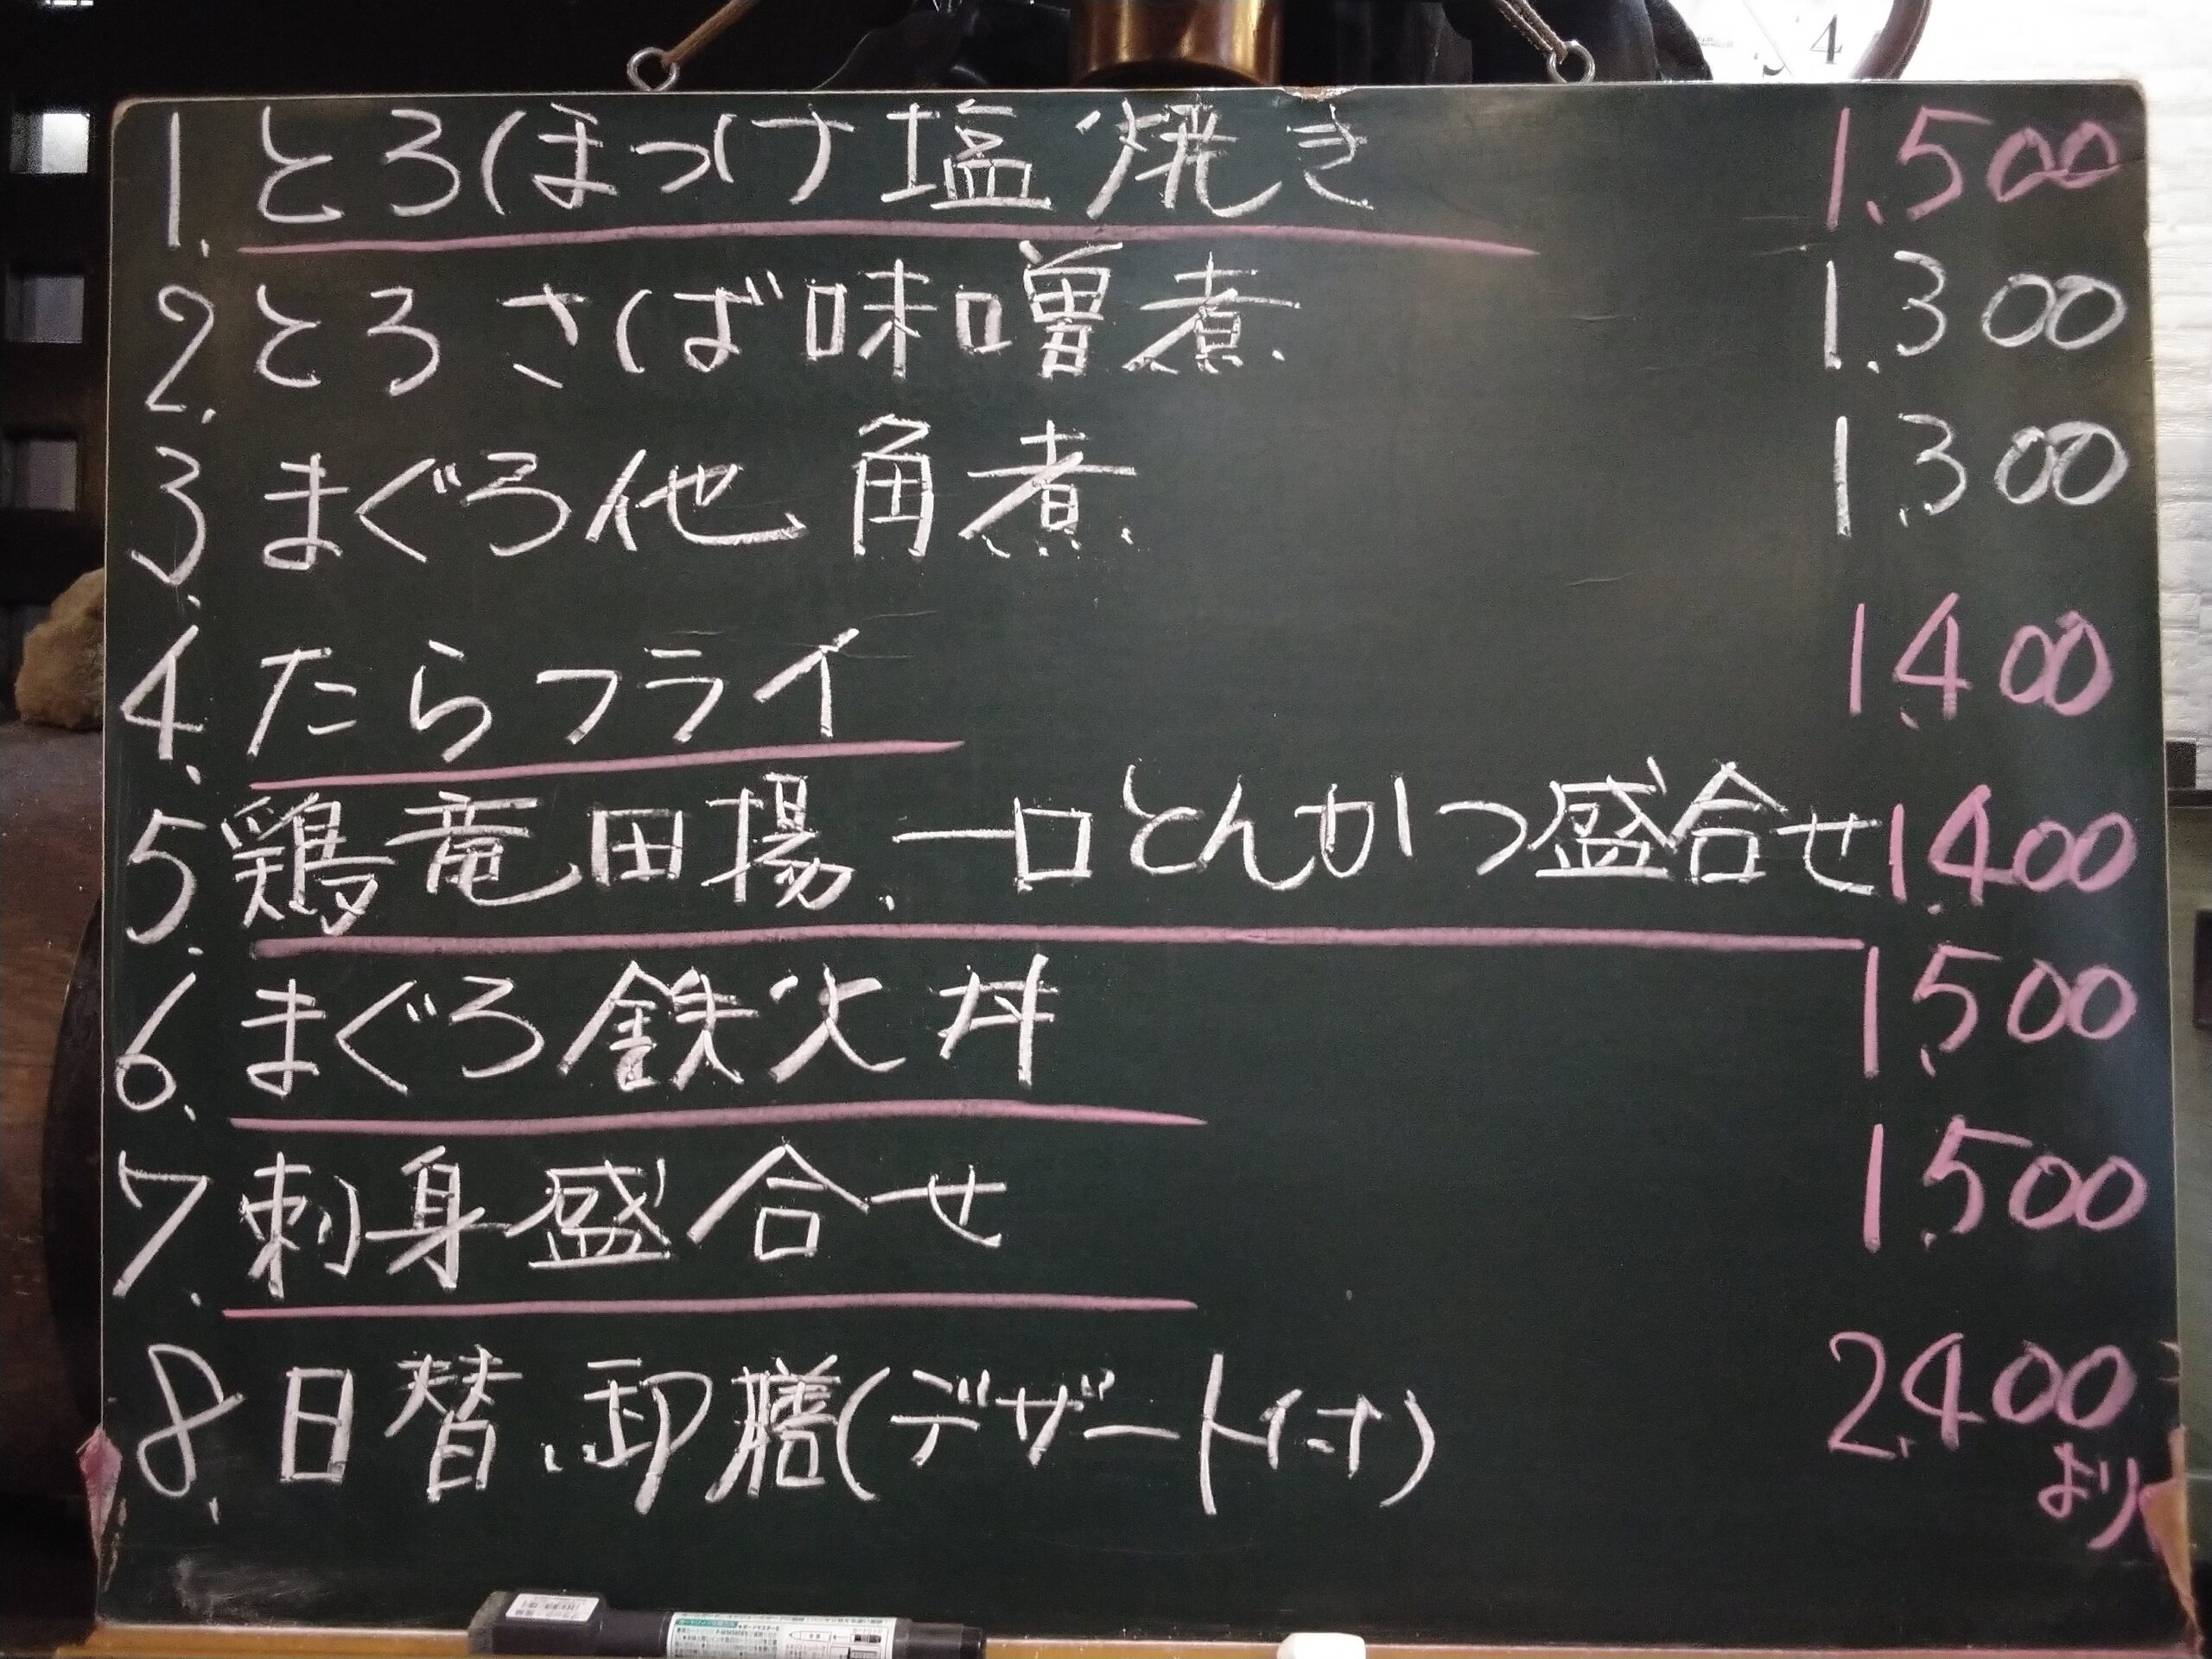 4
1. とろほっけ塩焼き 1.500
2. とろさば味噌煮 1.300
3. まぐろ他 角煮 1.300
4. たらフライ 1.400
5. 鶏竜田揚、一口とんかつ盛合せ 1.400
6. まぐろ鉄火丼 1.500
7. 刺身盛合せ 1.500
8. 日替、卸膳(デザート付) 2.400
より